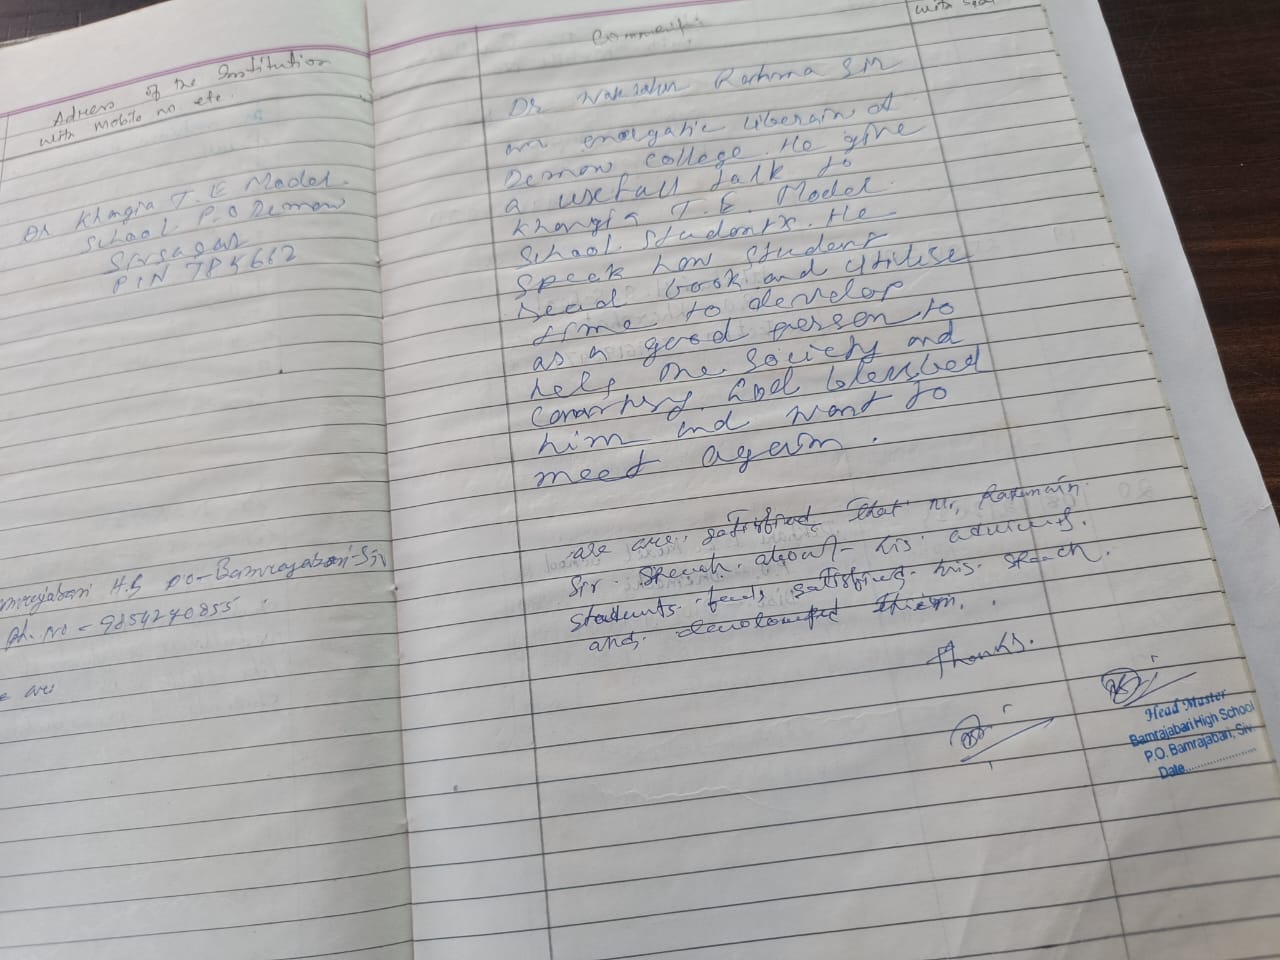 Adress of the Institution
with mobile no etc.
Khangia T. E Model
School P.O Demow
Sivsagar
PIN 785662
H.S P.O- Bamrajabari-Siv
Ph. No - 9854240855
are
Comments
with seal
Dr Rahman Sir
an energatic liberain at
Demow College. He give
a usefull talk to
Khangia T. E. Model
School Students. He
speak how student
read book and Utilise
time to develop
as a good person to
help the society and
God blessed
him and want to
meet again.
are satisfied that Mr. Rahman
Sir Speech about his
students feels satisfied his speech
and them.
Thanks.
Head Master
Bamrajabari High School
P.O. Bamrajabari, Siv
Date